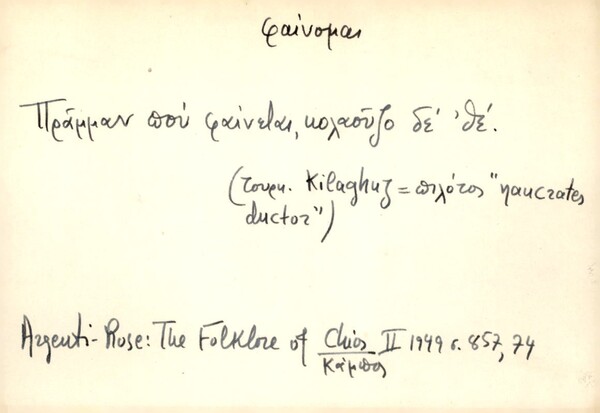 φαίνομαι
Πρᾶμμαν ποὺ φαίνεται, κολαοῦζο δέ 'θέ.
(τουρκ. Kilaghuz = πιλότος "naucrates
ductor")
Argenti-Rose: The Folklore of Chios II 1949 σ. 857, 74
Κάμπος